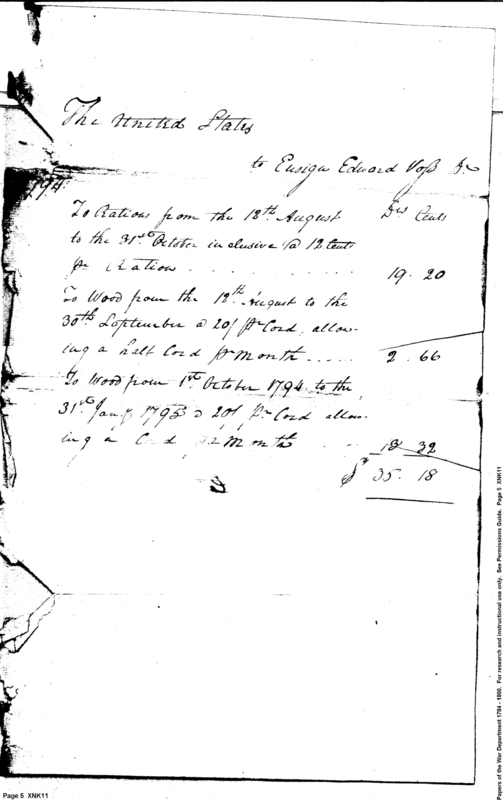 The United States
to Ensign Edward Voss Dr
1794
To Rations from the 12th August Drs Cents
to the 31st October inclusive @ 12 Cents
pr Ration . . . . . . . . . . . 19. 20
To Wood from the 12th August to the
30th September @ 20/ pr Cord, allow-
ing a half Cord pr Month . . . . . 2. 66
To Wood from 1st October 1794 to the
31st Jany 1795 @ 20/ pr Cord allow-
ing a Cord pr Month . . . 13 32
$ 35. 18
Page 5 XNK11
Papers of the War Department 1784 - 1800. For research and instructional use only. See Permissions Guide. Page 5 XNK11